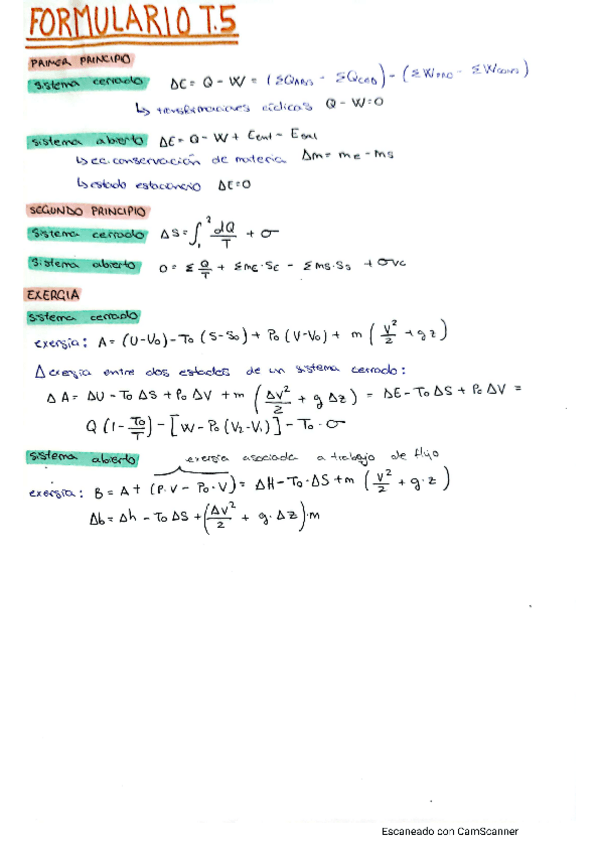 FORMULARIO T.5
PRIMER PRINCIPIO
sistema cerrado ΔE = Q - W = (ΣQABS - ΣQCED) - (ΣWPRO - ΣWCONS)
↳ transformaciones cíclicas Q - W = 0
sistema abierto ΔE = Q - W + Eent - Esal
↳ ec. conservación de materia Δm = mE - mS
↳ estado estacionario ΔE = 0
SEGUNDO PRINCIPIO
sistema cerrado ΔS = ∫₁² dQ/T + σ
sistema abierto 0 = Σ Q/T + ΣmE·SE - ΣmS·SS + σVC
EXERGIA
sistema cerrado
exergia: A = (U-U0) - T0 (S-S0) + P0 (V-V0) + m (V²/2 + gz)
Δ exergia entre dos estados de un sistema cerrado:
ΔA = ΔU - T0 ΔS + P0 ΔV + m (ΔV²/2 + g Δz) = ΔE - T0 ΔS + P0 ΔV =
Q (1 - T0/T) - [W - P0 (V2-V1)] - T0·σ
sistema abierto exergia asociada a trabajo de flujo
exergia: B = A + (P·V - P0·V) = ΔH - T0·ΔS + m (V²/2 + g·z)
Δb = Δh - T0 ΔS + (ΔV²/2 + g·Δz)·m
Escaneado con CamScanner